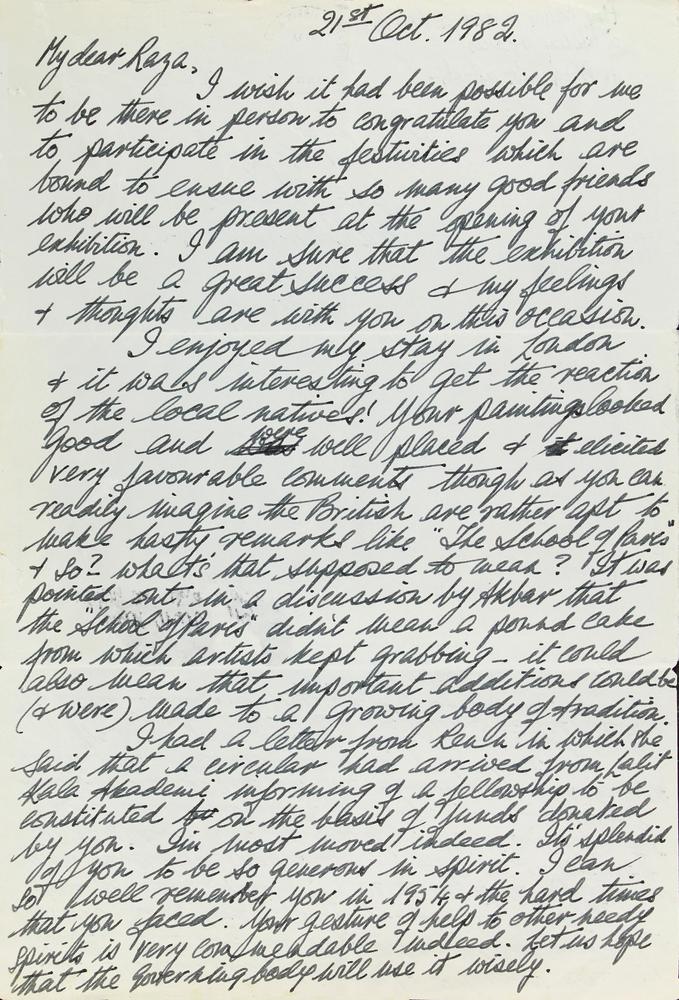 21st Oct. 1982.
My dear Raza,
I wish it had been possible for me
to be there in person to congratulate you and
to participate in the festivities which are
bound to ensue with so many good friends
who will be present at the opening of your
exhibition. I am sure that the exhibition
will be a great success & my feelings
& thoughts are with you on this occasion.
I enjoyed my stay in London
& it was interesting to get the reaction
of the local natives! Your paintings looked
good and were well placed & elicited
very favourable comments though as you can
readily imagine the British are rather apt to
make hasty remarks like "The School of Paris"
& so? what's that supposed to mean? It was
pointed out in a discussion by Akbar that
the "School of Paris" didn't mean a pound cake
from which artists kept grabbing – it could
also mean that important additions could be
(& were) made to a growing body of tradition.
I had a letter from Renu in which she
said that a circular had arrived from Lalit
Kala Akademi informing of a fellowship to be
constituted on the basis of funds donated
by you. I'm most moved indeed. Its splendid
of you to be so generous in spirit. I can
so well remember you in 1954 & the hard times
that you faced. Your gesture of help to other needy
spirits is very commendable indeed. Let us hope
that the governing body will use it wisely.